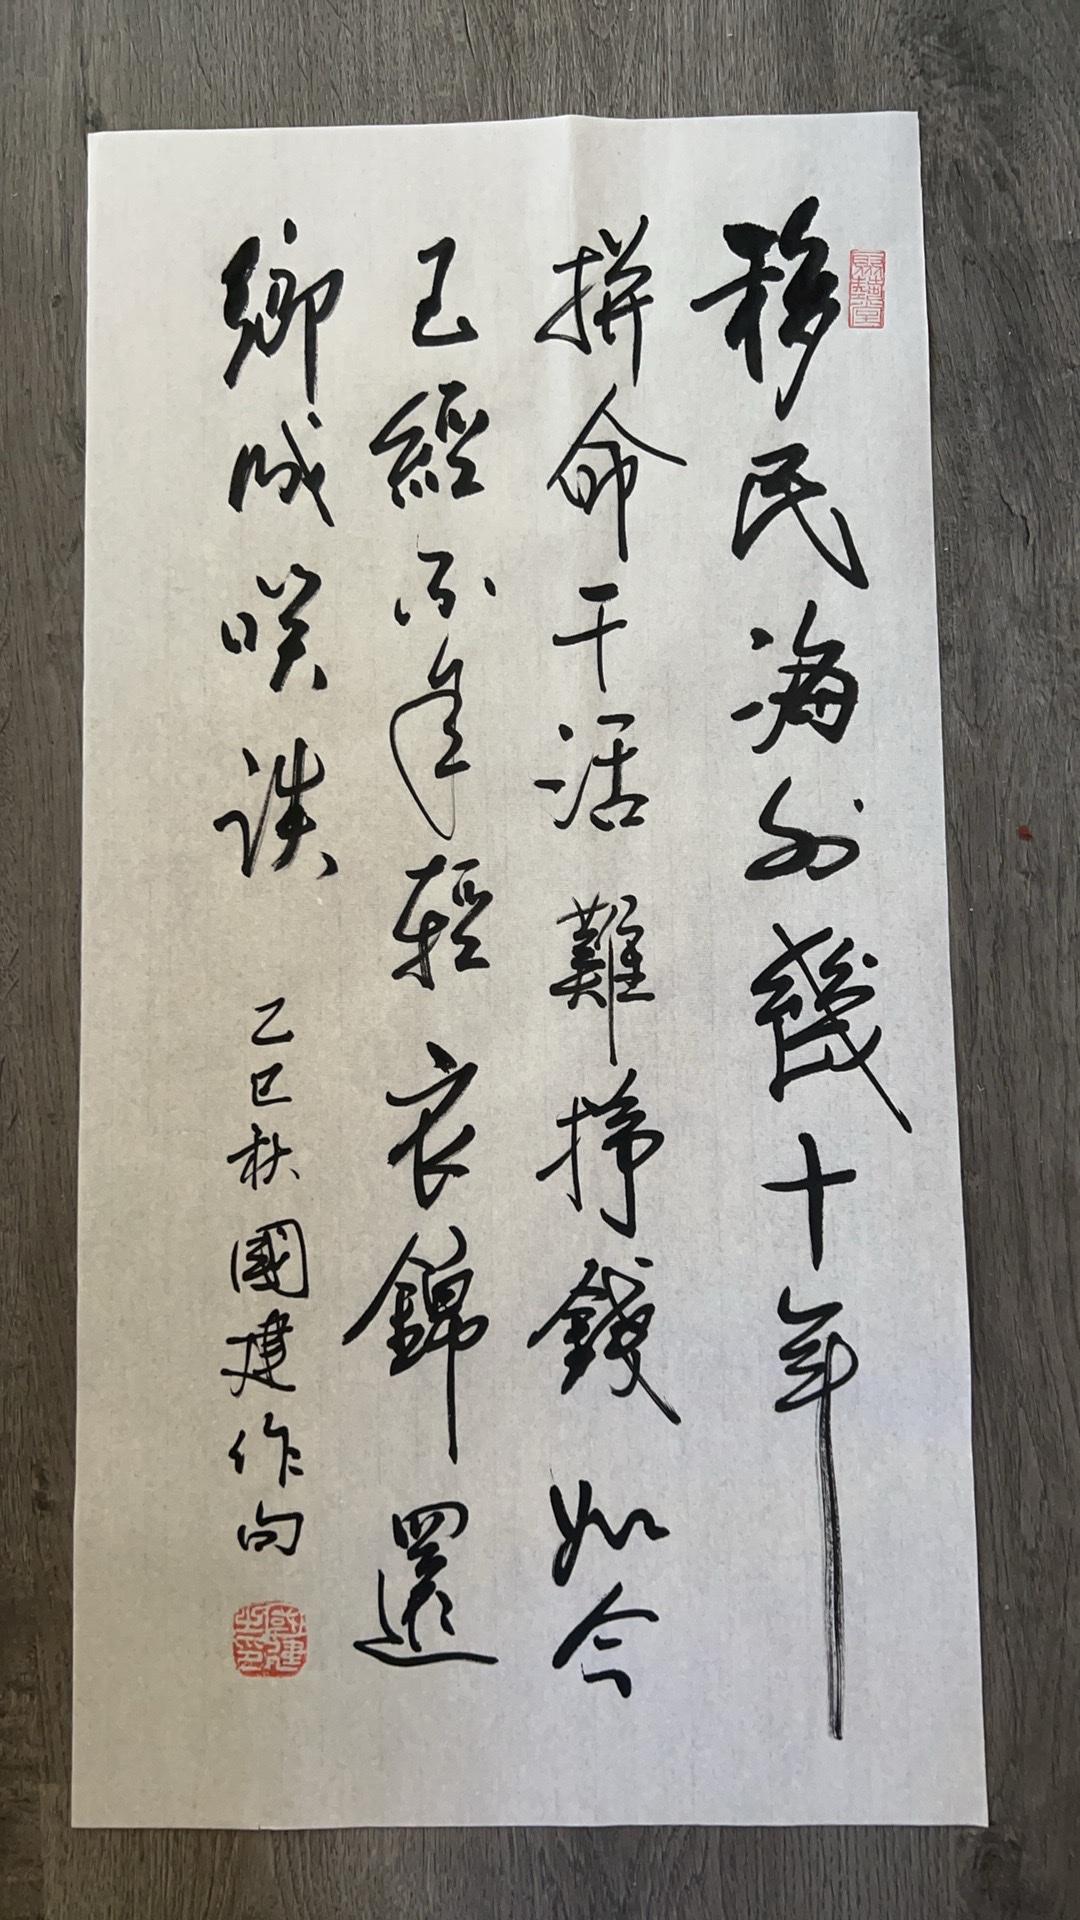 移民海外幾十年
拼命干活難掙錢如今
已經不年輕衣錦還
鄉成笑談
乙巳秋國建作句
國建之印